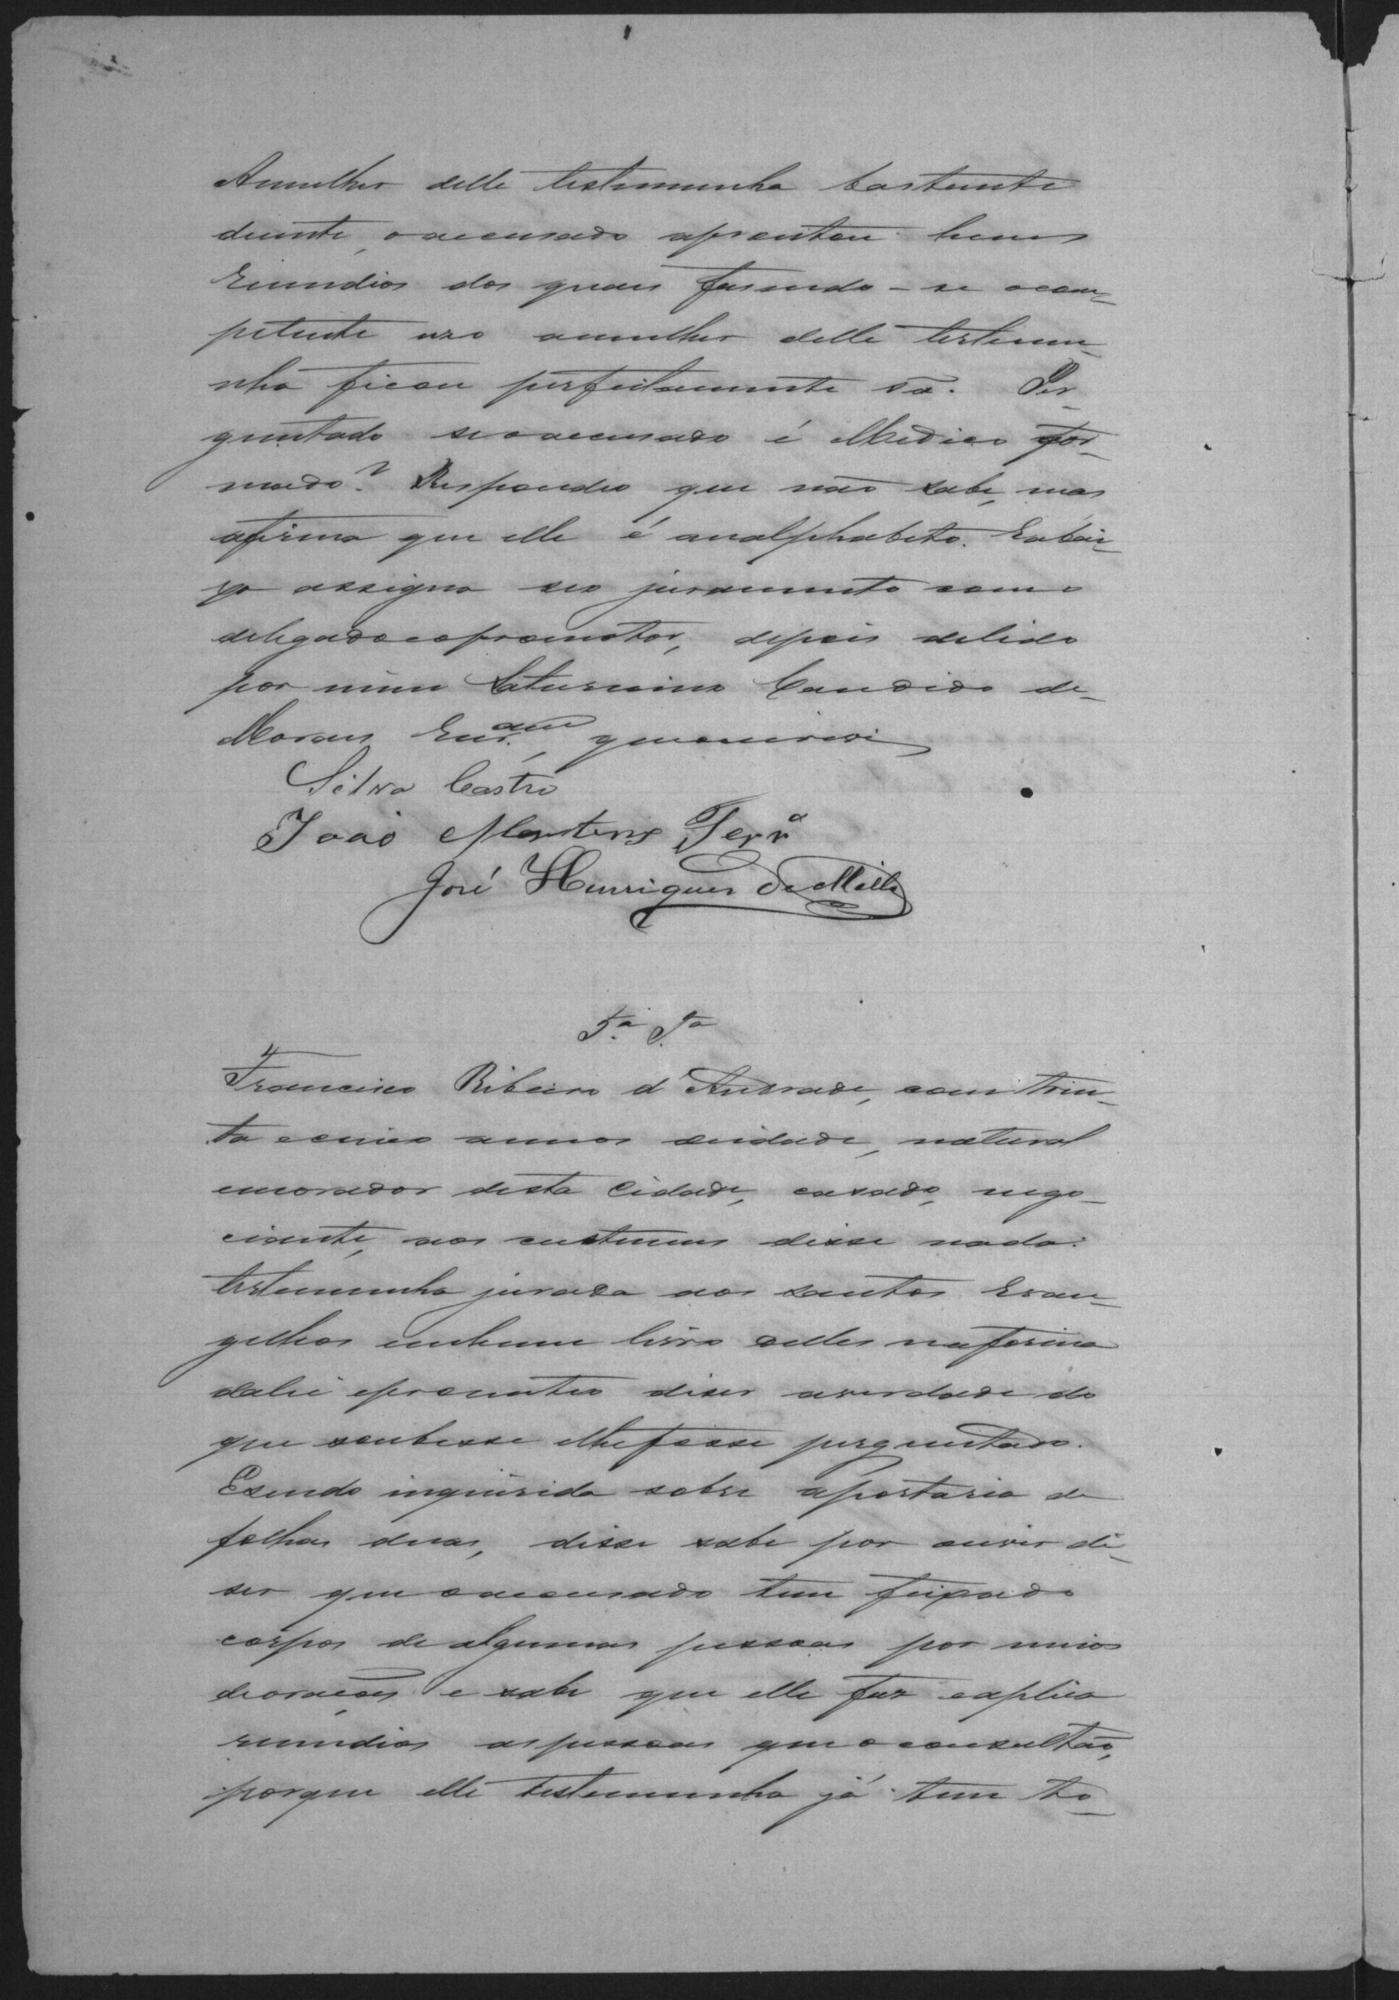 Amulher delle testimunha bastante
duente, o accusado aprontou huns
remedios dos quais fasendo-se o com-
petente uso amulher delle testemu-
nha ficou perfeitamente sã. Per-
guntado seo accusado é Medico for-
mado? Respondeo que não sabe, mas
afirma que elle é analphabeto. E abai-
xo assigna seo juramento com o
delegado e o promotor, depois delido
por mim Saturnino Candido de
Moraes Encr.am que escrevi
Silva Castro
João Martins Ferr.a
José Henriques de Mello
5.a T.a
Francisco Ribeiro d'Andrade, com trin-
ta e cinco annos deidade, natural
emorador desta Cidade, casado, nego-
ciante, aos custumes disse nada.
testemunha jurada aos Santos Evan-
gelhos em hum livro delles na forma
dalei eprometeo diser averdade do
que soubesse elhe fosse perguntado.
E sendo inquirida sobre aportaria de
folhas duas, disse sabe por ouvir di-
ser que o accusado tem feixado
corpos de algumas pessoas por meios
deorações e sabe que elle faz e aplica
remedios as pessoas que o consultão,
porque elle testemunha já tem to-